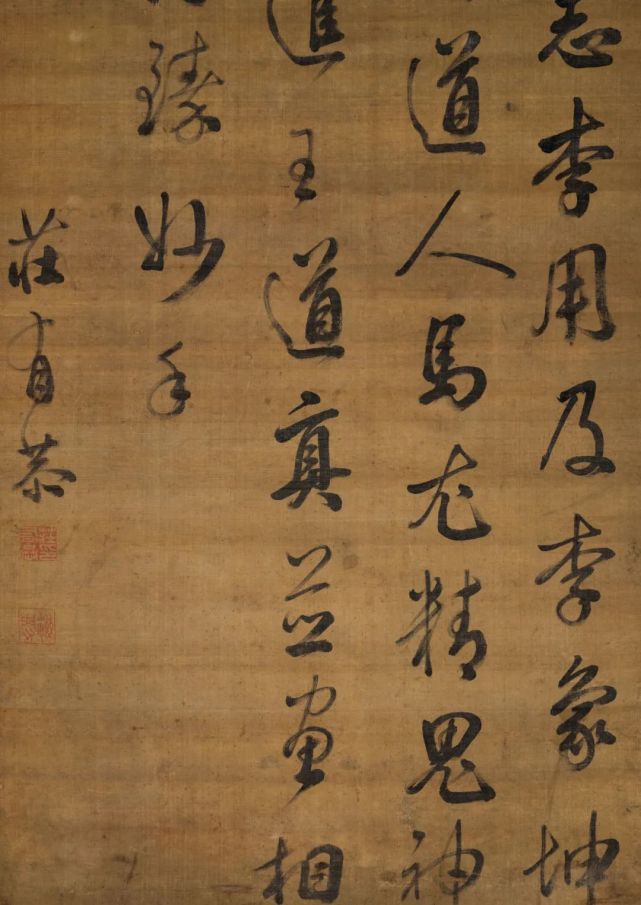 志李用及李象坤
道人馬尤精鬼神
進王道真並畫相
臻妙手
莊有恭